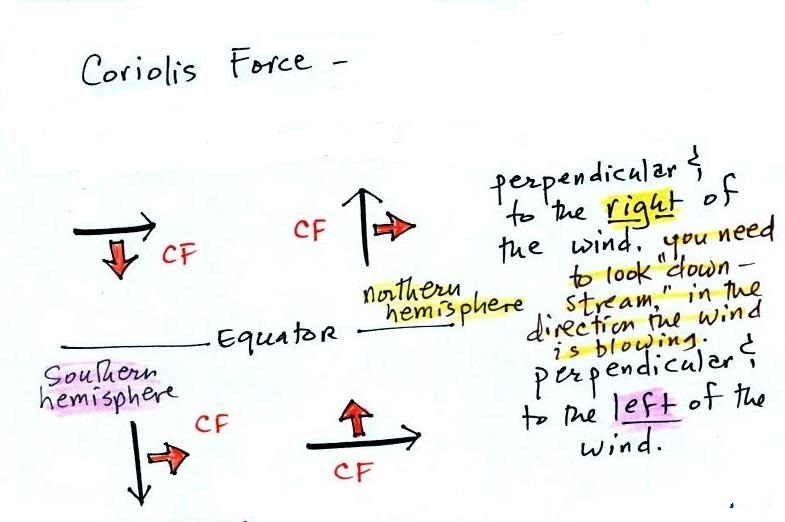 Coriolis Force -
perpendicular &
to the right of
the wind. you need
to look "down-
stream," in the
direction the wind
is blowing.
CF
CF
northern
hemisphere
Equator
Southern
hemisphere
perpendicular &
to the left of the
wind.
CF
CF